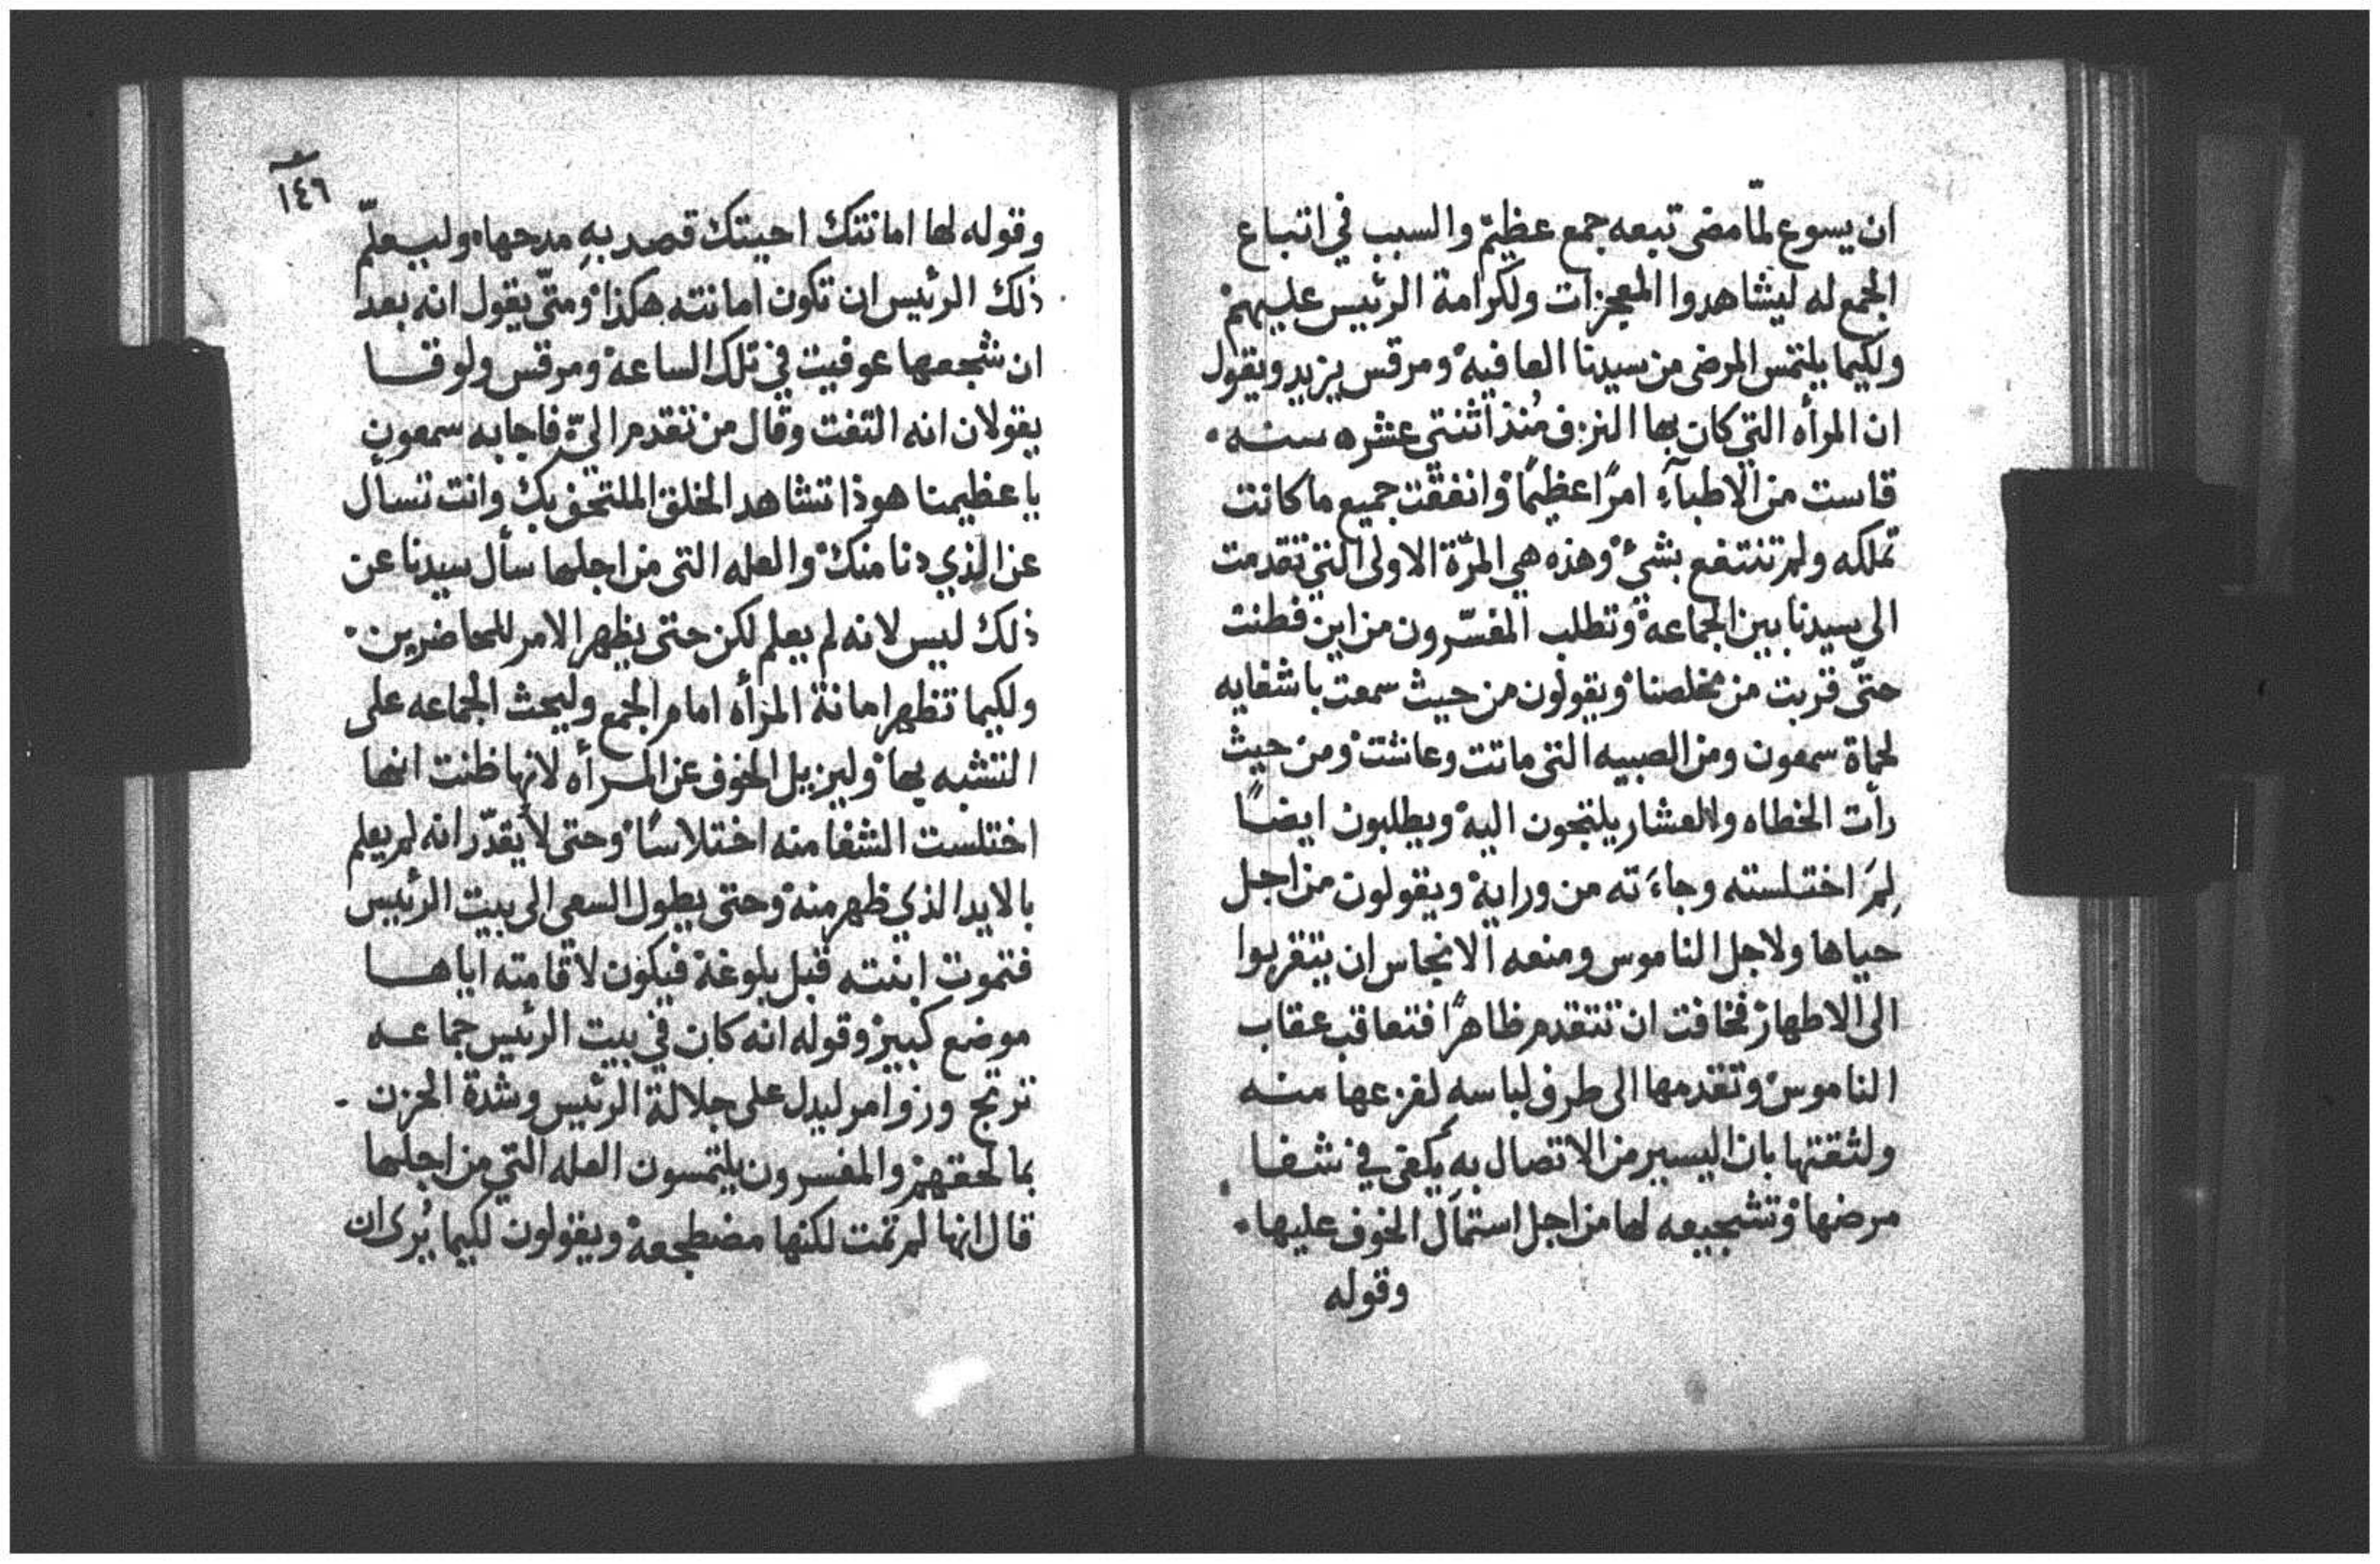 ان يسوع لمّا مضى تبعه جمع عظيم والسبب في اتباع
الجمع له ليشاهدوا المعجزات ولكرامة الرئيس عليهم
ولكيما يلتمس المرضى من سيدنا العافيه ومرقس يزيد ويقول
ان المرأه التي كان بها النزف مُنذ اثنتي عشره سنه
قاست من الاطبآء امرًا عظيمًا وانفقت جميع ما كانت
تملكه ولم تنتفع بشيٍ وهذه هي المرّة الاولى التي تقدمت
الى سيدنا بين الجماعة وتطلب المفسّرون من اين فطنت
حتّى قربت من مخلصنا ويقولون من حيث سمعت باشفايه
لحماة سمعون ومن الصبيه التي ماتت وعاشت ومن حيث
رأت الخطاه والعشار يلتجون اليه ويطلبون ايضًا
لِمَ اختلسته وجاءَته من ورايه ويقولون من اجل
حياها ولاجل الناموس ومنعه الانجاس ان يتقربوا
الى الاطهار فخافت ان تتقدم ظاهرًا فتعاقب عقاب
الناموس وتقدمها الى طرف لباسه لفزعها منه
ولثقتها بان اليسير من الاتصال به يكفي في شفا
مرضها وتشجيعه لها من اجل استمآل الخوف عليها
وقوله
١٤٦
وقوله لها امانتك احيتك قصد بهِ مدحها وليعلّم
ذلك الرئيس ان تكون امانته هكذا ومتّى يقول انه بعد
ان شجعها عوفيت في تلك الساعة ومرقس ولوقا
يقولان انه التفت وقال من تقدم اليّ فاجابه سمعون
يا عظيمنا هوذا تشاهد الخلق الملتحق بك وانت تسأل
عن الذي دنا منك والعله التي من اجلها سأل سيدنا عن
ذلك ليس لانه لم يعلم لكن حتى يظهر الامر للحاضرين
ولكيما تظهر امانة المرأه امام الجمع وليحث الجماعه على
التشبه بها وليزيل الخوف عن المرأه لانها ظنت انها
اختلست الشفا منه اختلاسًا وحتى لا يقدّر انه لم يعلم
بالايد الذي ظهر منه وحتى يطول السعي الى بيت الرئيس
فتموت ابنته قبل بلوغه فيكون لاقامته اياها
موضع كبير وقوله انه كان في بيت الرئيس جماعه
ترتج وزوامر ليدل على جلالة الرئيس وشدة الحزن
بما لحقهم والمفسرون يلتمسون العله التي من اجلها
قال انها لم تمت لكنها مضطجعة ويقولون لكيما يُرى ان